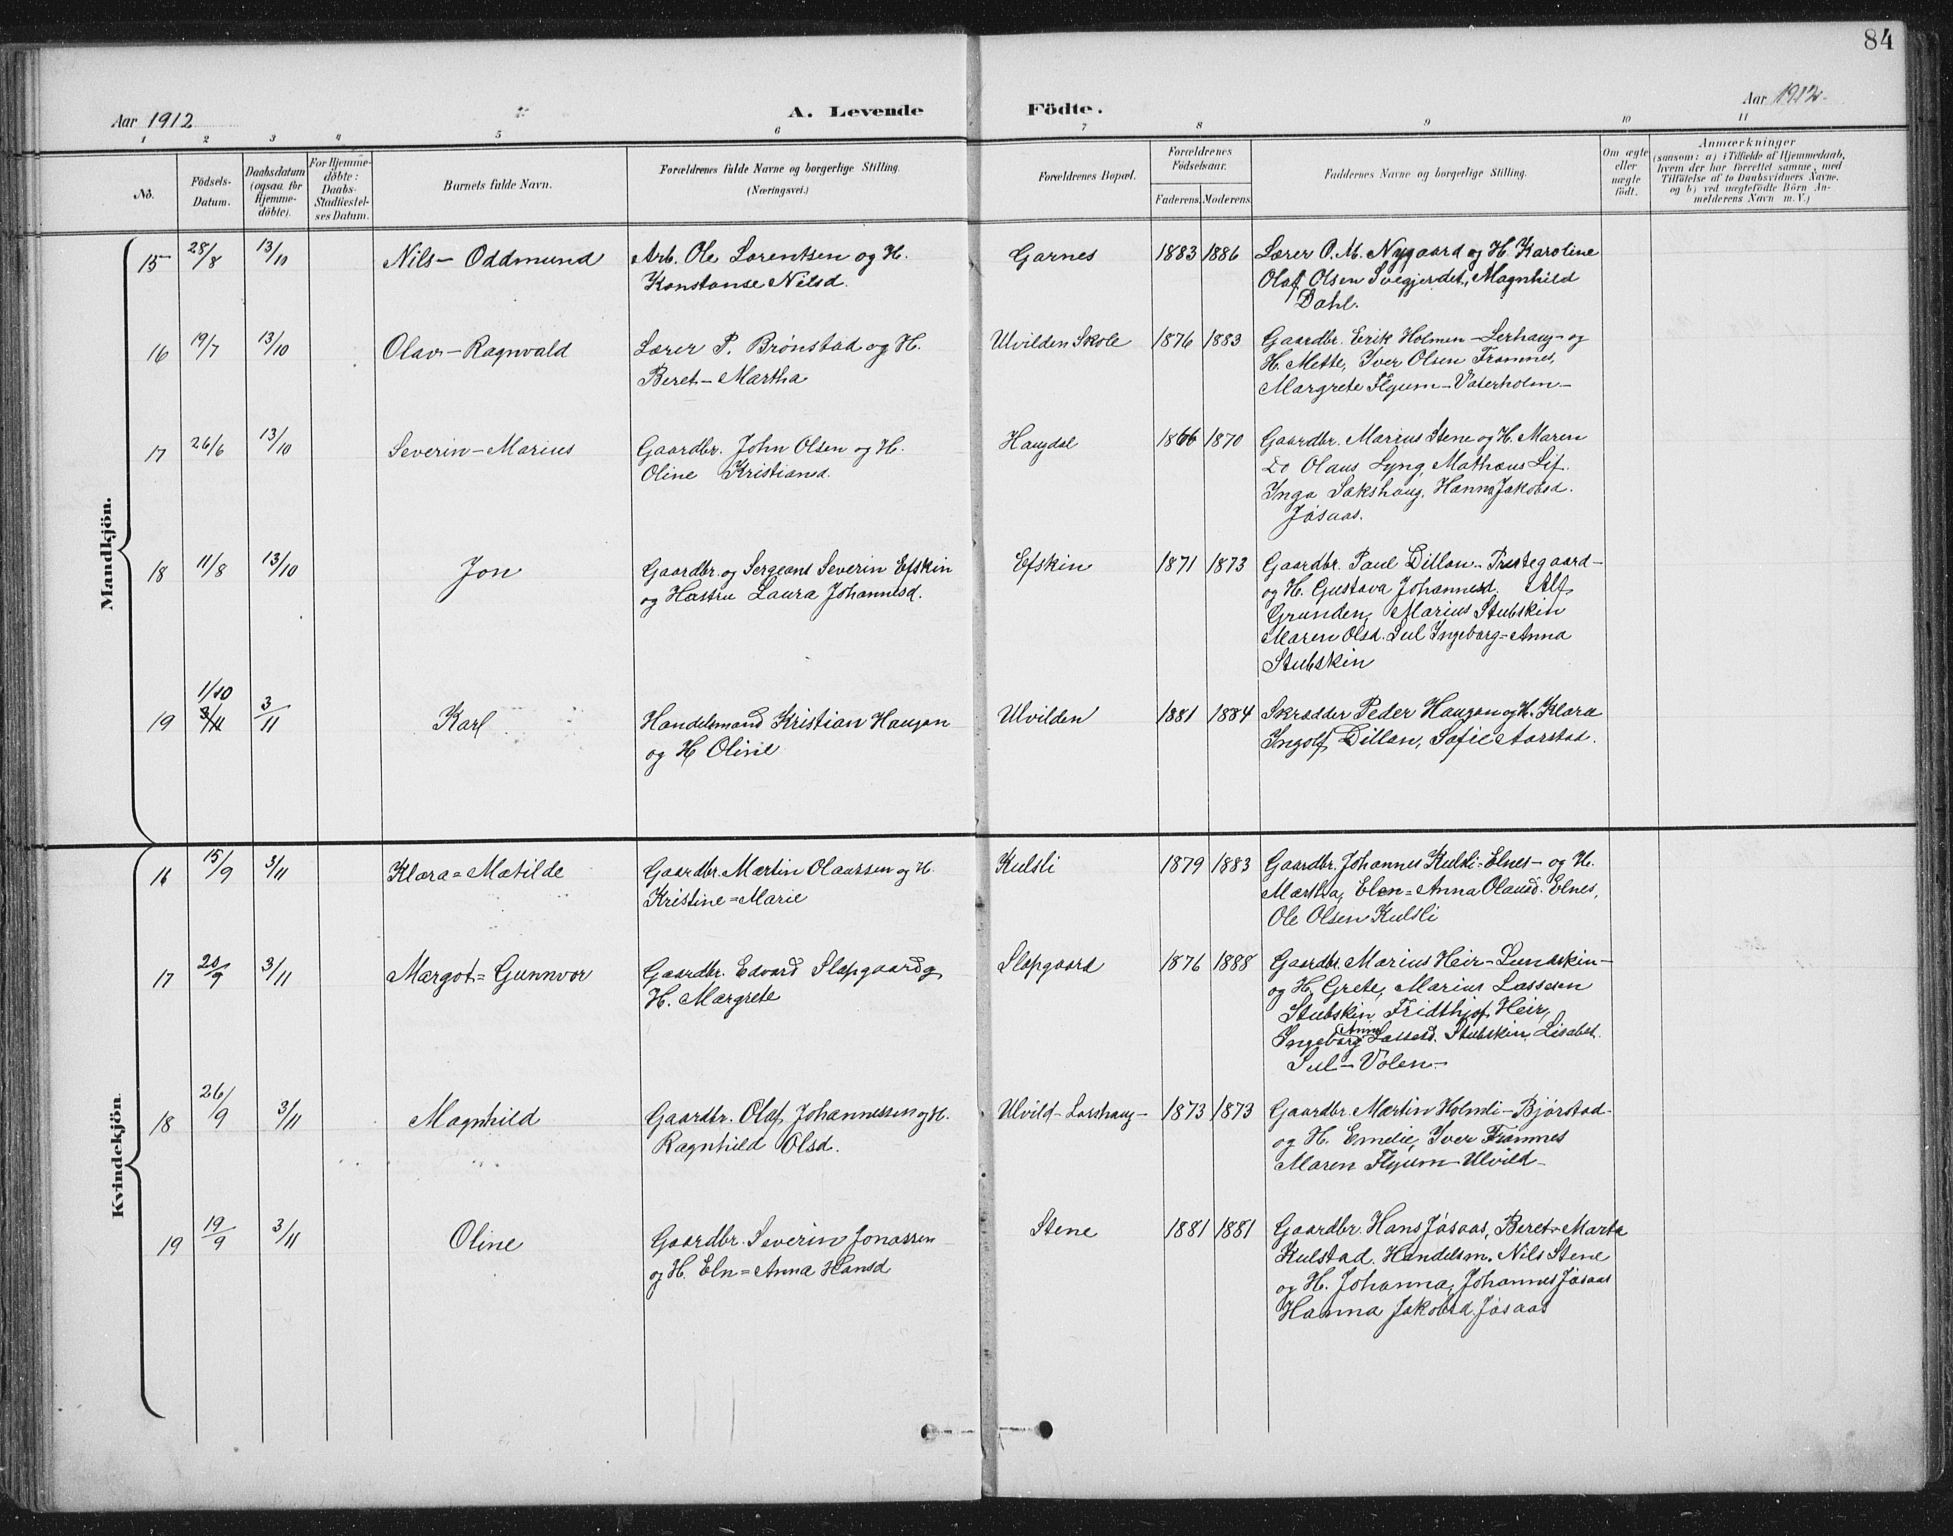 84
Aar 1912
A. Levende Födte.
Aar 1912
1 2 3 4 5 6 7 8 9 10 11
No.
Födsels-
Datum.
Daabsdatum
(ogsaa for
Hjemme-
döbte).
For Hjemme-
döbte:
Daabs-
Stadfæstel-
ses Datum.
Barnets fulde Navn.
Forældrenes fulde Navne og borgerlige Stilling.
(Næringsvei.)
Forældrenes Bopæl.
Forældrenes
Födselsaar.
Faderens. Moderens.
Faddernes Navne og borgerlige Stilling.
Om ægte
eller
uægte
födt.
Anmærkninger
(saasom: a) i Tilfælde af Hjemmedaab,
hvem der har forrettet samme, med
Tilföielse af to Daabsvidners Navne,
og b) ved uægtefödte Börn An-
melderens Navn m. V.)
Mandkjön.
15 28/8 13/10 Nils-Oddmund Arb. Ole Lorentsen og H. Garnes 1883 1886 Lærer O. M. Nygaard og H. Karoline
Konstanse Nilsd. Olaf Olsen Svegjerdet, Magnhild
Dahl.
16 19/7 13/10 Olav-Ragnvald Lærer P. Brønstad og H. Ulvilden Skole 1876 1883 Gaardbr. Erik Holmen-Lerhaug- og
Beret-Martha H. Mette, Iver Olsen Framnes,
Margrete Flyum-Vaterholm-
17 26/6 13/10 Severin-Marius Gaardbr. John Olsen og H. Haugdal 1866 1870 Gaardbr. Marius Stene og H. Maren
Oline Kristiansd. Do Olaus Lyng, Mathæus Lif.
Inga Sakshaug, Hanna Jakobsd.
Jøsaas.
18 11/8 13/10 Jon Gaardbr. og Sergeant Severin Efskin Efskin 1871 1873 Gaardbr. Paul Dillan-Prestegaard-
og Hustru Laura Johannesd. og H. Gustava Johannesd. Alf
Grunden, Marius Stubskin
Maren Olsd. Sul Ingeborg-Anna
Stubskin
19 1/10 3/11 3/11 Karl Handelsmand Kristian Haugan Ulvilden 1881 1884 Skrædder Peder Haugan og H. Klara
og H Oline Ingolf Dillan, Sofie Aarstad.
Kvindekjön.
16 15/9 3/11 Klara-Matilde Gaardbr. Martin Olaussen og H. Kulsli 1879 1883 Gaardbr. Johannes Kulsli-Elnes- og H.
Kristine-Marie Martha, Elen-Anna Olausd. Elnes,
Ole Olsen Kulsli
17 20/9 3/11 Margot-Gunnvor Gaardbr. Edvard Slapgaard og Slapgaard 1876 1888 Gaardbr. Marius Heir-Lundskin-
H. Margrete og H. Grete, Marius Lassesen
Stubskin, Fridthjof Heir,
Ingeborg Anna Lassesd. Stubskin, Lisabet
Sul-Volen-
18 26/9 3/11 Magnhild Gaardbr. Olaf Johannessen og H. Ulvild-Larshaug- 1873 1873 Gaardbr. Martin Holmli-Bjørstad-
Ragnhild Olsd. og H. Emelie, Iver Framnes
Maren Flyum-Ulvild-
19 19/9 3/11 Oline Gaardbr. Severin Jonassen Stene 1881 1881 Gaardbr. Hans Jøsaas, Beret-Marta
og H. Eln-Anna Hansd Kulstad, Handelsm. Nils Stene
og H. Johanna, Johannes Jøsaas
Hanna Jakobsd. Jøsaas